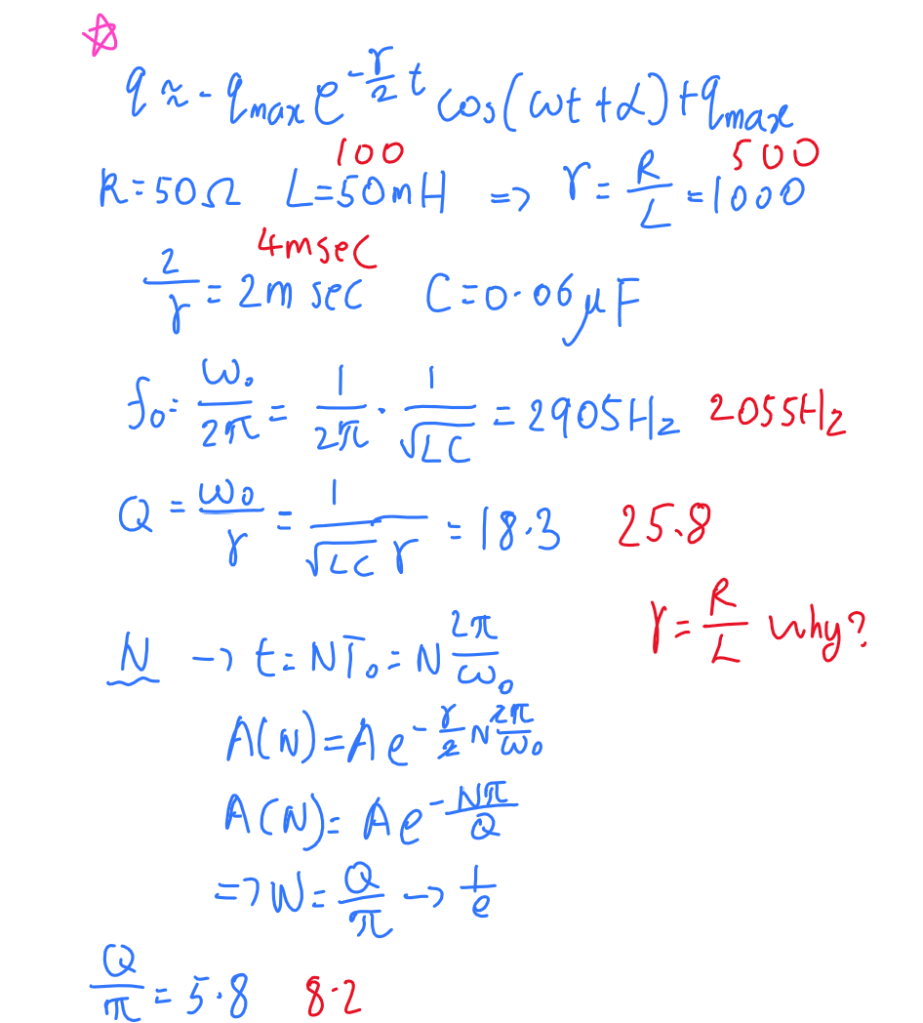 q ≈ - q_max e^{-γ/2 t} cos(ωt + α) + q_max
100 500
R = 50Ω L = 50mH => γ = R/L = 1000
4msec
2/γ = 2m sec C = 0.06μF
f₀ = ω₀/2π = 1/2π · 1/√LC = 2905Hz 2055Hz
Q = ω₀/γ = 1/√LC γ = 18.3 25.8
γ = R/L why?
N -> t = NT₀ = N 2π/ω₀
A(N) = A e^{-γ/2 N 2π/ω₀}
A(N) = A e^{-Nπ/Q}
=> N = Q/π -> 1/e
Q/π = 5.8 8.2